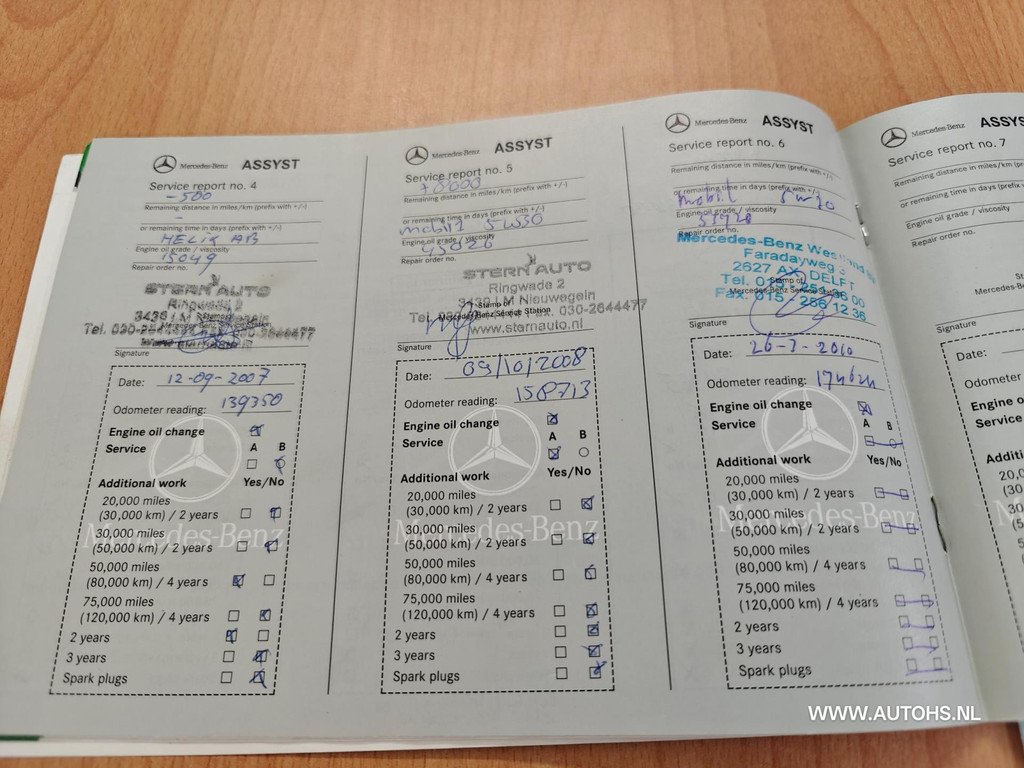 Mercedes-Benz ASSYST
Service report no. 4
-500
Remaining distance in miles/km (prefix with +/-)
-
or remaining time in days (prefix with +/-)
HELIX
Engine oil grade / viscosity
15049
Repair order no.
STERN AUTO
Ringwade 2
Nieuwegein
Stamp of
Mercedes-Benz Service Station
Signature
Date: 12-09-2007
Odometer reading: 139350
Engine oil change
Service A B
Additional work Yes/No
20,000 miles
(30,000 km) / 2 years
30,000 miles
(50,000 km) / 2 years
50,000 miles
(80,000 km) / 4 years
75,000 miles
(120,000 km) / 4 years
2 years
3 years
Spark plugs
Mercedes-Benz
Mercedes-Benz ASSYST
Service report no. 5
+8000
Remaining distance in miles/km (prefix with +/-)
or remaining time in days (prefix with +/-)
mobil1 5W30
Engine oil grade / viscosity
45826
Repair order no.
STERN AUTO
Ringwade 2
3439 LM Nieuwegein
Stamp of
Mercedes-Benz Service Station
Tel. 030-2644477
www.sternauto.nl
Signature
Date: 09/10/2008
Odometer reading: 158713
Engine oil change
A B
Service
Additional work Yes/No
20,000 miles
(30,000 km) / 2 years
30,000 miles
(50,000 km) / 2 years
50,000 miles
(80,000 km) / 4 years
75,000 miles
(120,000 km) / 4 years
2 years
3 years
Spark plugs
Mercedes-Benz
Mercedes-Benz ASSYST
Service report no. 6
Remaining distance in miles/km (prefix with +/-)
or remaining time in days (prefix with +/-)
mobil
Engine oil grade / viscosity
Repair order no.
Mercedes-Benz
Faradayweg
2627 AX DELFT
Stamp of
Mercedes-Benz Service Station
Fax. 015 - 256 12 36
Signature
Date: 26-3-2010
Odometer reading:
Engine oil change
Service A B
Additional work Yes/No
20,000 miles
(30,000 km) / 2 years
30,000 miles
(50,000 km) / 2 years
50,000 miles
(80,000 km) / 4 years
75,000 miles
(120,000 km) / 4 years
2 years
3 years
Spark plugs
Mercedes-Benz
Mercedes-Benz
Service report no. 7
Remaining distance in miles/km
or remaining time in days (prefix
Engine oil grade / viscosity
Repair order no.
Mercedes
Signature
Date:
Odometer
Engine oil
Service
WWW.AUTOHS.NL